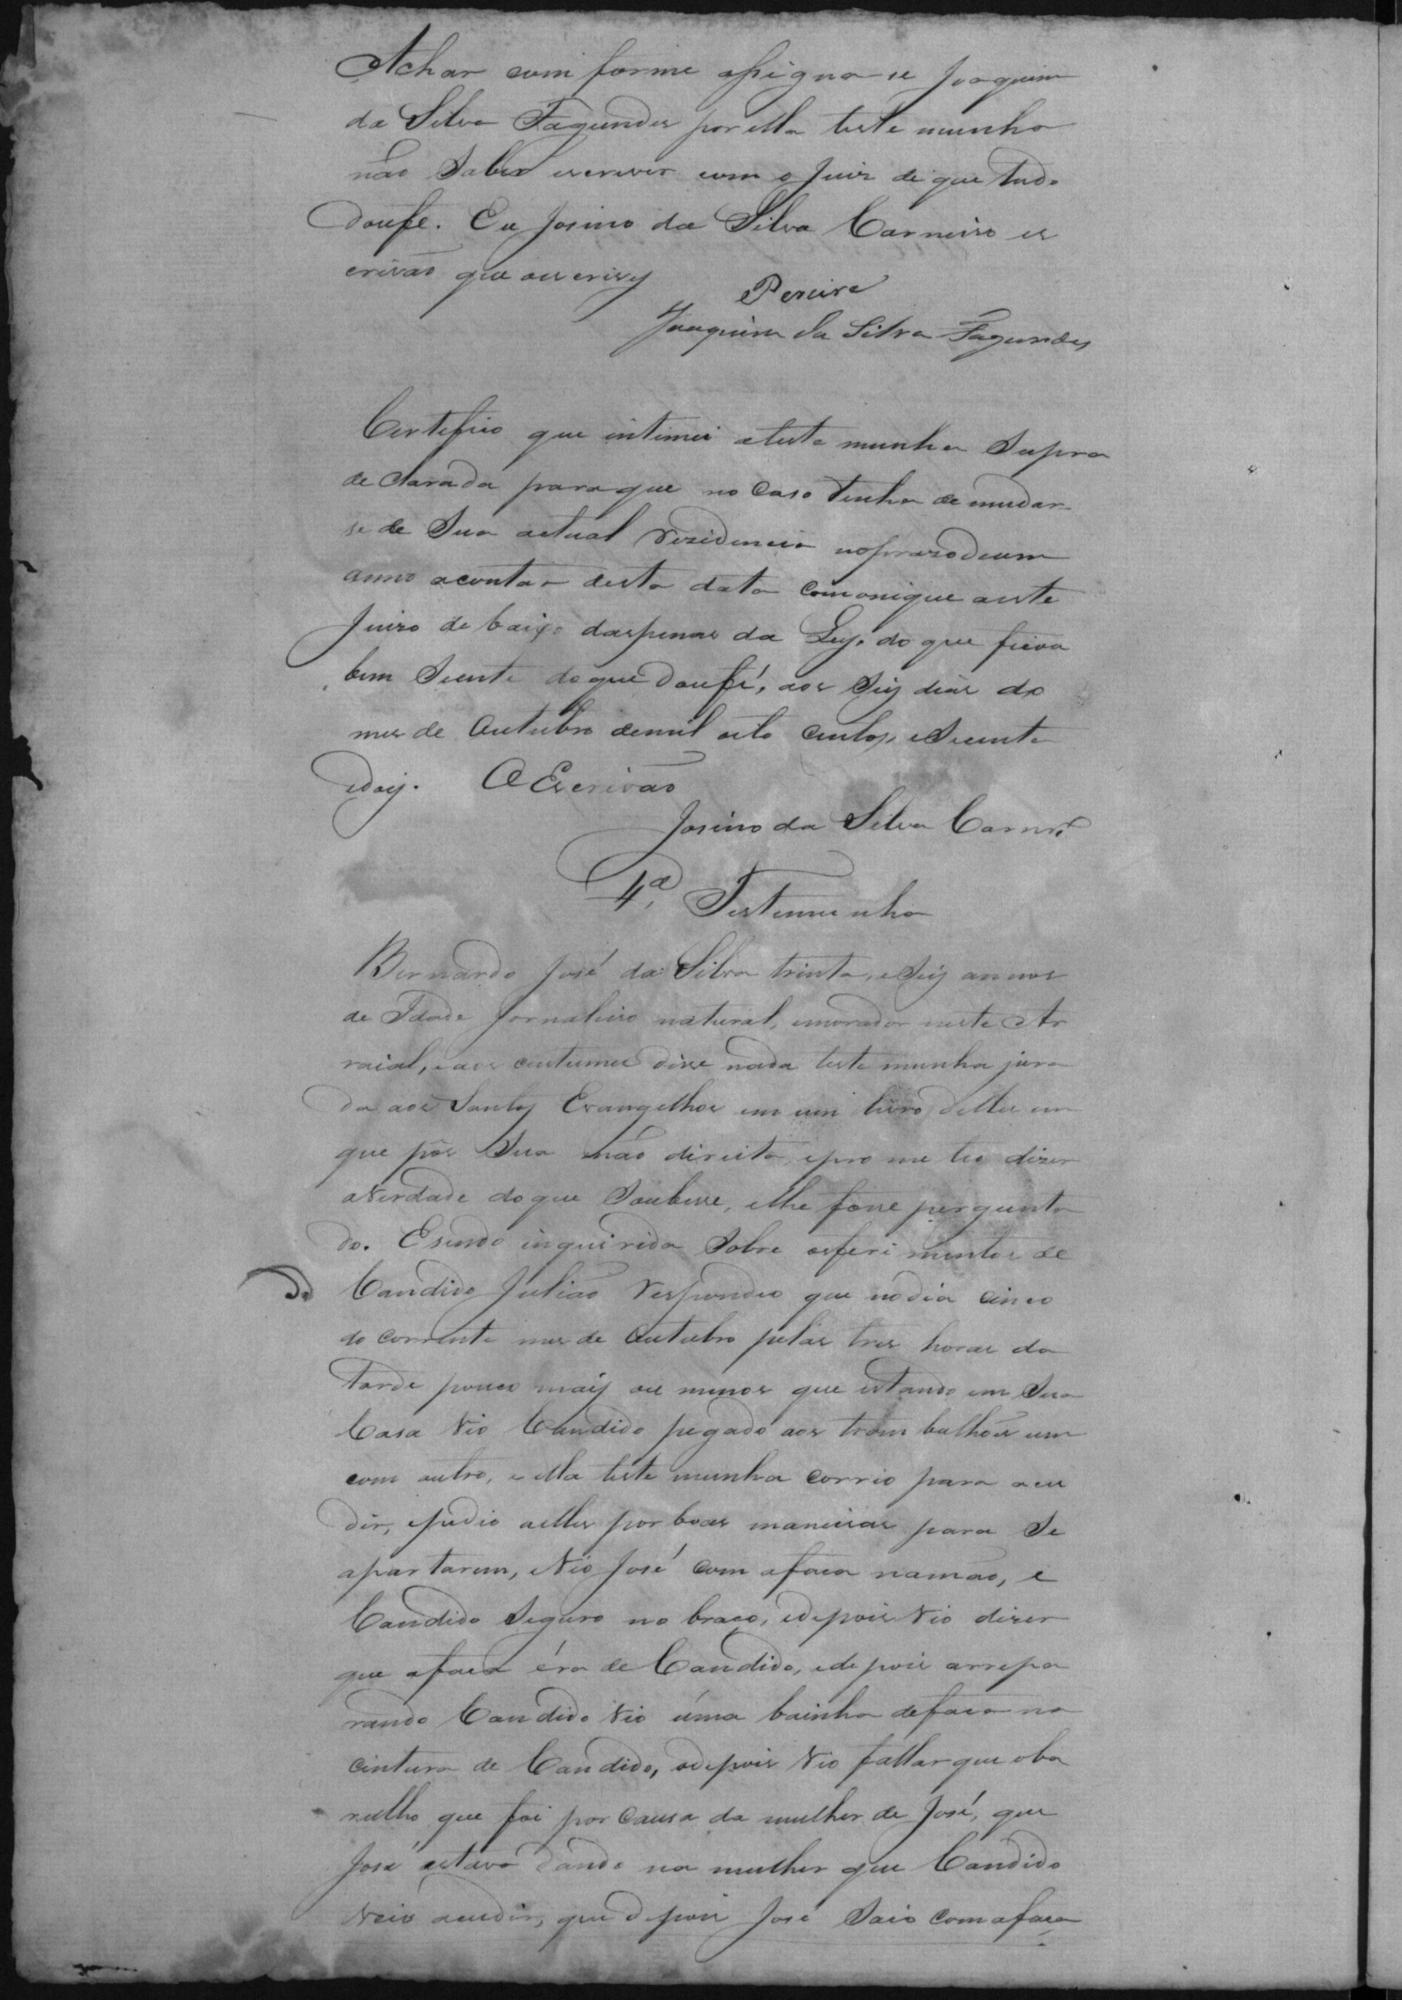 Achar com forme assigna se Joaquim
da Silva Fagundes por ella teste munha
não Saber escrever com o Juis de que tudo
doufe. Eu Josino da Silva Carneiro es
crivão que escrivy
Pereira
Joaquim da Silva Fagundes
Certefico que intimei a teste munha Supra
de clarada paraque no Caso tenha de mudar
se de Sua actual Rezidencia noprazodeum
anno acontar desta data comonique aeste
Juizo de baixo daspenas da Ley. do que ficou
bem Sciente doque doufé, aos Seis dias do
mes de Outubro demil oito centos, eSecenta
edois. O Escrivão
Josino da Silva Carnrº
4ª Testemunha
Bernardo José da Silva trinta, eSeis annos
de Idade Jornaleiro natural, emorador neste Ar
raial, eaos custumes disse nada teste munha jura
da aos Santos Evangelhos em um livro delles em
que pôs Sua mão direita, epro me teo dizer
averdade doque Soubesse, elhe fosse pergunta
do. Esendo inquirida Sobre osferi mentos de
Candido Julião Respondeo que nodia cinco
do corrente mes de Outubro pelas tres horas da
tarde pouco mais ou menos que estando em Sua
Casa Vio Candido pegado aos trom bulhões um
com outro, e ella teste munha corrio para acu
dir, epedio aelles por boas maneiras para Se
apartarem, eVio José com afaca namão, e
Candido Seguro no braço, edepois Vio dizer
que afaca éra de Candido, edepois arrepa
rando Candido Vio uma bainha defaca na
cintura de Candido, edepois Vio fallar que oba
rulho que foi por Causa da mulher de José, que
José estava dando na mulher que Candido
Veio acudir, que depois José Saio comafaca